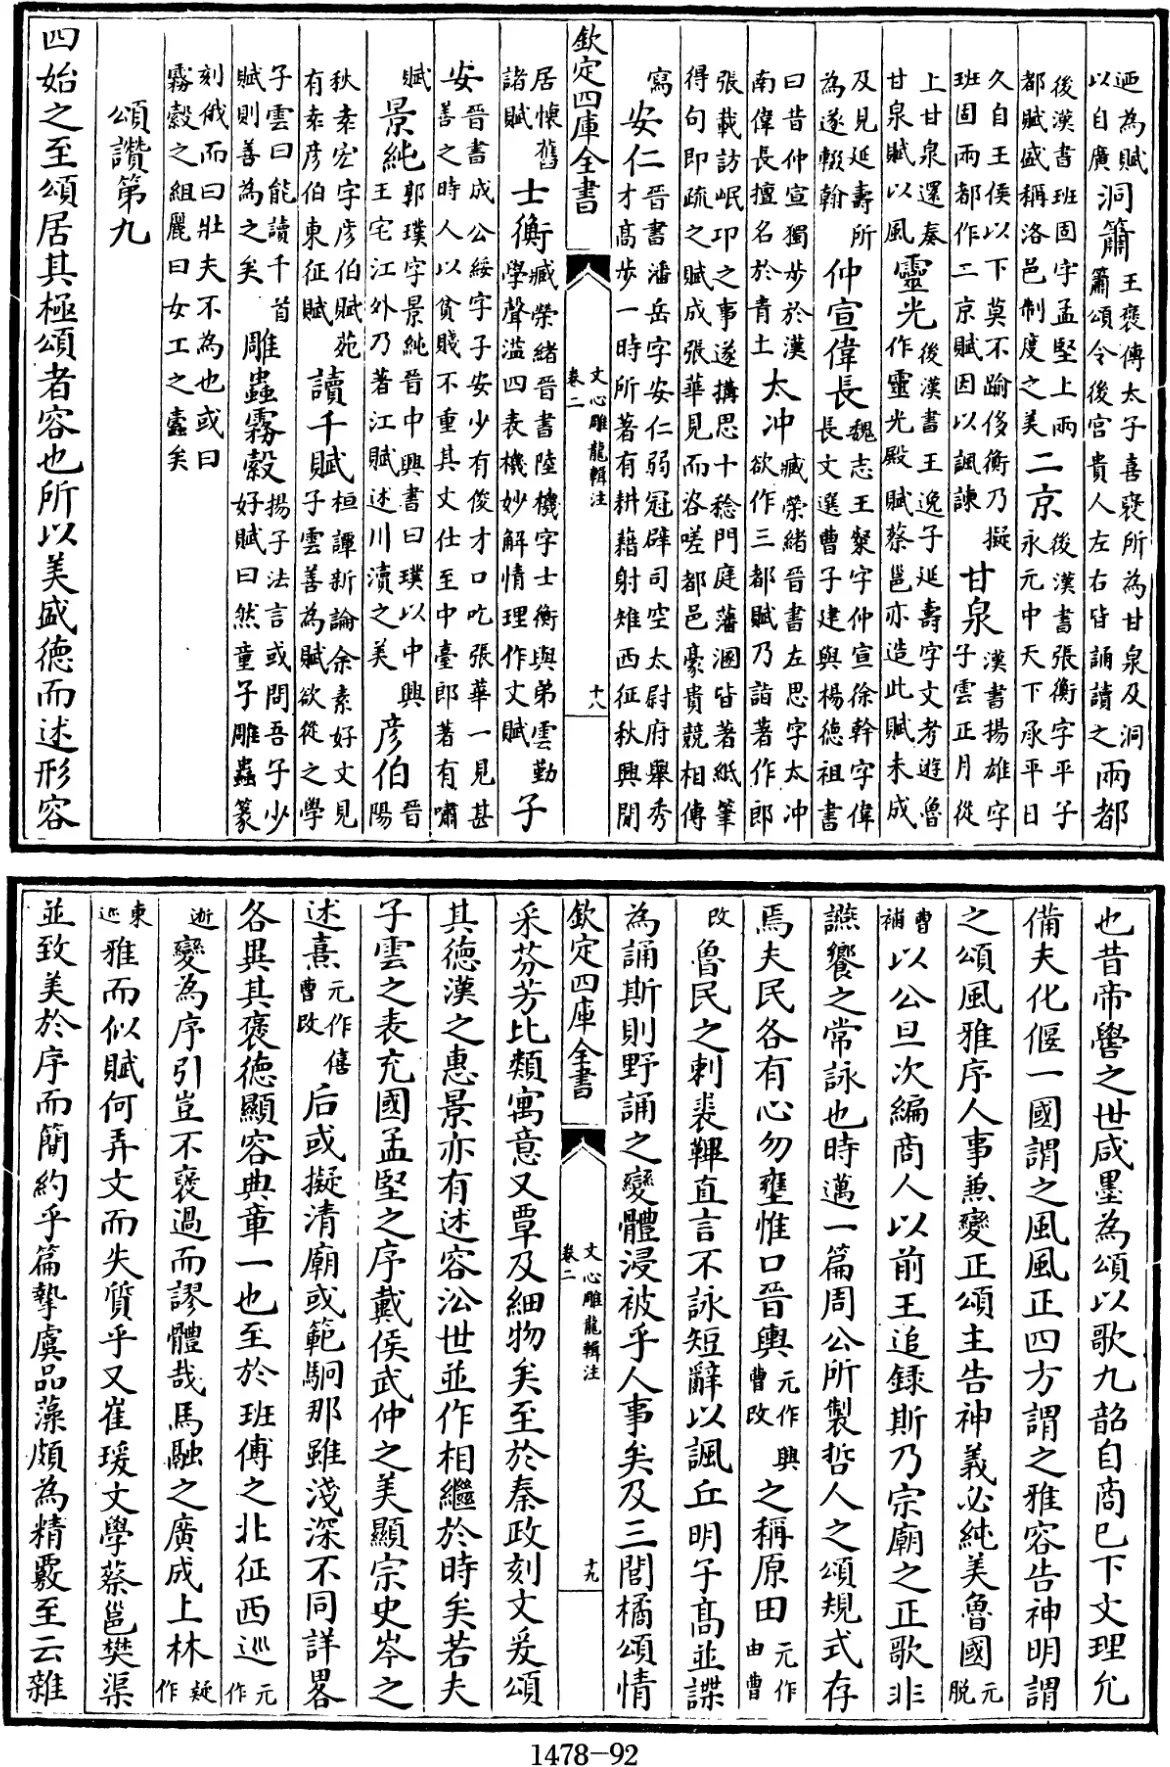 迺為賦以自廣洞簫王褒傳太子喜褒所為甘泉及洞簫頌令後宮貴人左右皆誦讀之兩都
後漢書班固字孟堅上兩都賦盛稱洛邑制度之美二京後漢書張衡字平子永元中天下承平日
久自王侯以下莫不踰侈衡乃擬班固兩都作二京賦因以諷諫甘泉漢書揚雄字子雲正月從
上甘泉還奏甘泉賦以風靈光後漢書王逸子延壽字文考遊魯作靈光殿賦蔡邕亦造此賦未成
及見延壽所為遂輟翰仲宣偉長魏志王粲字仲宣徐幹字偉長文選曹子建與楊德祖書
曰昔仲宣獨步於漢南偉長擅名於青土太冲臧榮緒晉書左思字太冲欲作三都賦乃詣著作郎
張載訪岷卭之事遂搆思十稔門庭藩溷皆著紙筆得句即疏之賦成張華見而咨嗟都邑豪貴競相傳
寫安仁晉書潘岳字安仁弱冠辟司空太尉府舉秀才高步一時所著有耕藉射雉西征秋興閒
欽定四庫全書 文心雕龍輯注 卷二 十八
居懷舊諸賦士衡臧榮緒晉書陸機字士衡與弟雲勤學聲溢四表機妙解情理作文賦子
安晉書成公綏字子安少有俊才口吃張華一見甚善之時人以貧賤不重其文仕至中臺郎著有嘯
賦景純郭璞字景純晉中興書曰璞以中興王宅江外乃著江賦述川瀆之美彥伯晉陽
秋袁宏字彥伯賦苑有袁彥伯東征賦讀千賦桓譚新論余素好文見子雲善為賦欲從之學
子雲曰能讀千首賦則善為之矣雕蟲霧縠揚子法言或問吾子少好賦曰然童子雕蟲篆
刻俄而曰壯夫不為也或曰霧縠之組麗曰女工之蠹矣
頌讚第九
四始之至頌居其極頌者容也所以美盛德而述形容
也昔帝嚳之世咸墨為頌以歌九韶自商已下文理允
備夫化偃一國謂之風風正四方謂之雅容告神明謂
之頌風雅序人事兼變正頌主告神義必純美魯國元脫
曹補以公旦次編商人以前王追錄斯乃宗廟之正歌非
讌饗之常詠也時邁一篇周公所製哲人之頌規式存
焉夫民各有心勿壅惟口晉輿元作興曹改之稱原田元作由曹
改魯民之刺裘鞸直言不詠短辭以諷丘明子高並諜
為誦斯則野誦之變體浸被乎人事矣及三閭橘頌情
欽定四庫全書 文心雕龍輯注 卷二 十九
采芬芳比類寓意又覃及細物矣至於秦政刻文爰頌
其德漢之惠景亦有述容沿世並作相繼於時矣若夫
子雲之表充國孟堅之序戴侯武仲之美顯宗史岑之
述熹元作僖曹改后或擬清廟或範駉那雖淺深不同詳畧
各異其褒德顯容典章一也至於班傅之北征西巡元作
逝變為序引豈不褒過而謬體哉馬融之廣成上林疑作
東巡雅而似賦何弄文而失質乎又崔瑗文學蔡邕樊渠
並致美於序而簡約乎篇摯虞品藻頗為精覈至云雜
1478-92